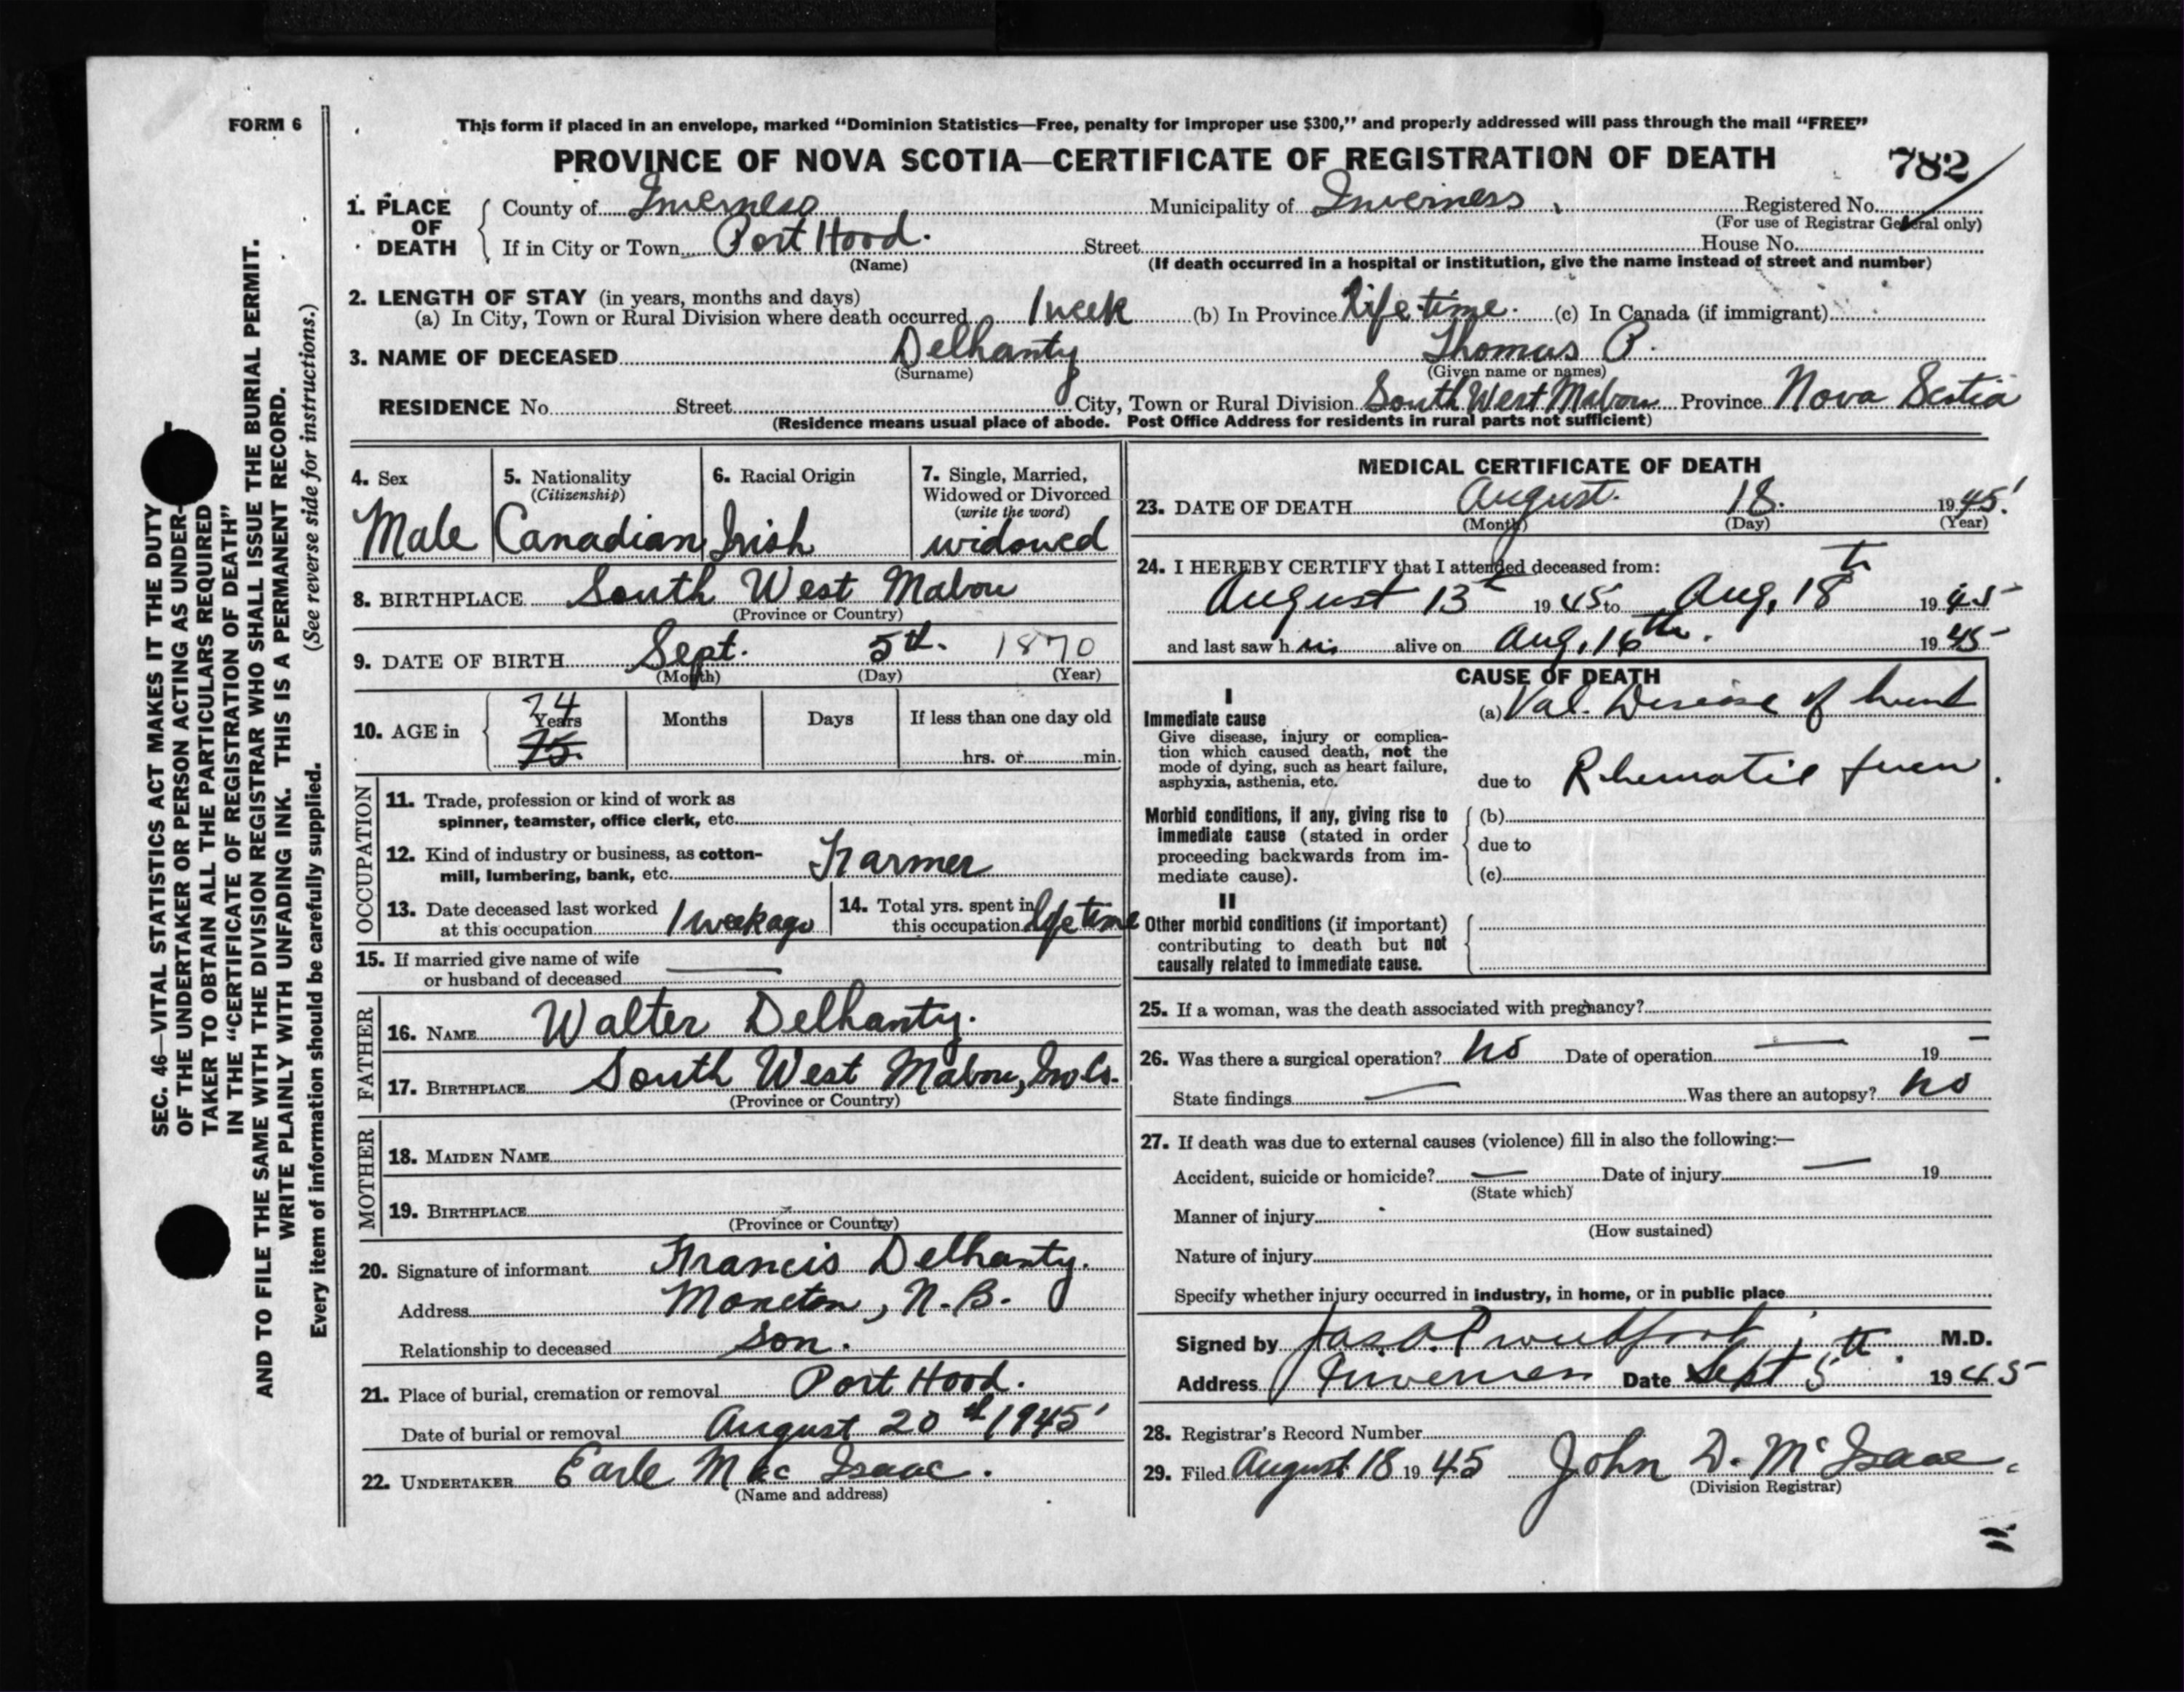 FORM 6
This form if placed in an envelope, marked “Dominion Statistics—Free, penalty for improper use $300,” and properly addressed will pass through the mail “FREE”
PROVINCE OF NOVA SCOTIA—CERTIFICATE OF REGISTRATION OF DEATH 782
1. PLACE OF DEATH
County of Inverness Municipality of Inverness. Registered No.
(For use of Registrar General only)
If in City or Town Port Hood. Street House No.
(Name) (If death occurred in a hospital or institution, give the name instead of street and number)
2. LENGTH OF STAY (in years, months and days)
(a) In City, Town or Rural Division where death occurred 1 week (b) In Province Life time. (c) In Canada (if immigrant)
3. NAME OF DECEASED Delhanty Thomas P.
(Surname) (Given name or names)
RESIDENCE No. Street City, Town or Rural Division South West Mabou Province Nova Scotia
(Residence means usual place of abode. Post Office Address for residents in rural parts not sufficient)
4. Sex
Male
5. Nationality
(Citizenship)
Canadian
6. Racial Origin
Irish
7. Single, Married,
Widowed or Divorced
(write the word)
widowed
8. BIRTHPLACE South West Mabou
(Province or Country)
9. DATE OF BIRTH Sept. 5th. 1870
(Month) (Day) (Year)
10. AGE in
74
Years
75.
Months
Days
If less than one day old
hrs. or min.
OCCUPATION
11. Trade, profession or kind of work as
spinner, teamster, office clerk, etc.
12. Kind of industry or business, as cotton-
mill, lumbering, bank, etc. Farmer
13. Date deceased last worked
at this occupation 1 week ago
14. Total yrs. spent in
this occupation life time
15. If married give name of wife
or husband of deceased —
FATHER
16. NAME Walter Delhanty.
17. BIRTHPLACE South West Mabou, Inv Co.
(Province or Country)
MOTHER
18. MAIDEN NAME
19. BIRTHPLACE
(Province or Country)
20. Signature of informant Francis Delhanty.
Address Moncton, N.B.
Relationship to deceased Son.
21. Place of burial, cremation or removal Port Hood.
Date of burial or removal August 20th 1945
22. UNDERTAKER Earle Mac Isaac.
(Name and address)
MEDICAL CERTIFICATE OF DEATH
23. DATE OF DEATH August. 18. 1945
(Month) (Day) (Year)
24. I HEREBY CERTIFY that I attended deceased from:
August 13th 1945 to Aug, 18th 1945
and last saw h im alive on Aug, 16th. 1945
CAUSE OF DEATH
I
Immediate cause
Give disease, injury or complica-
tion which caused death, not the
mode of dying, such as heart failure,
asphyxia, asthenia, etc.
(a) Val. Disease of heart
due to Rhematic fever.
Morbid conditions, if any, giving rise to
immediate cause (stated in order
proceeding backwards from im-
mediate cause).
(b)
due to
(c)
II
Other morbid conditions (if important)
contributing to death but not
causally related to immediate cause.
25. If a woman, was the death associated with pregnancy?
26. Was there a surgical operation? no Date of operation — 19 —
State findings — Was there an autopsy? no
27. If death was due to external causes (violence) fill in also the following:—
Accident, suicide or homicide? — Date of injury — 19
(State which)
Manner of injury
(How sustained)
Nature of injury
Specify whether injury occurred in industry, in home, or in public place
Signed by Jas. A. Proudfoot M.D.
Address Inverness Date Sept 5th. 1945
28. Registrar's Record Number
29. Filed August 18 1945 John D. McIsaac.
(Division Registrar)
SEC. 46—VITAL STATISTICS ACT MAKES IT THE DUTY
OF THE UNDERTAKER OR PERSON ACTING AS UNDER-
TAKER TO OBTAIN ALL THE PARTICULARS REQUIRED
IN THE “CERTIFICATE OF REGISTRATION OF DEATH”
AND TO FILE THE SAME WITH THE DIVISION REGISTRAR WHO SHALL ISSUE THE BURIAL PERMIT.
WRITE PLAINLY WITH UNFADING INK. THIS IS A PERMANENT RECORD.
Every item of information should be carefully supplied. (See reverse side for instructions.)